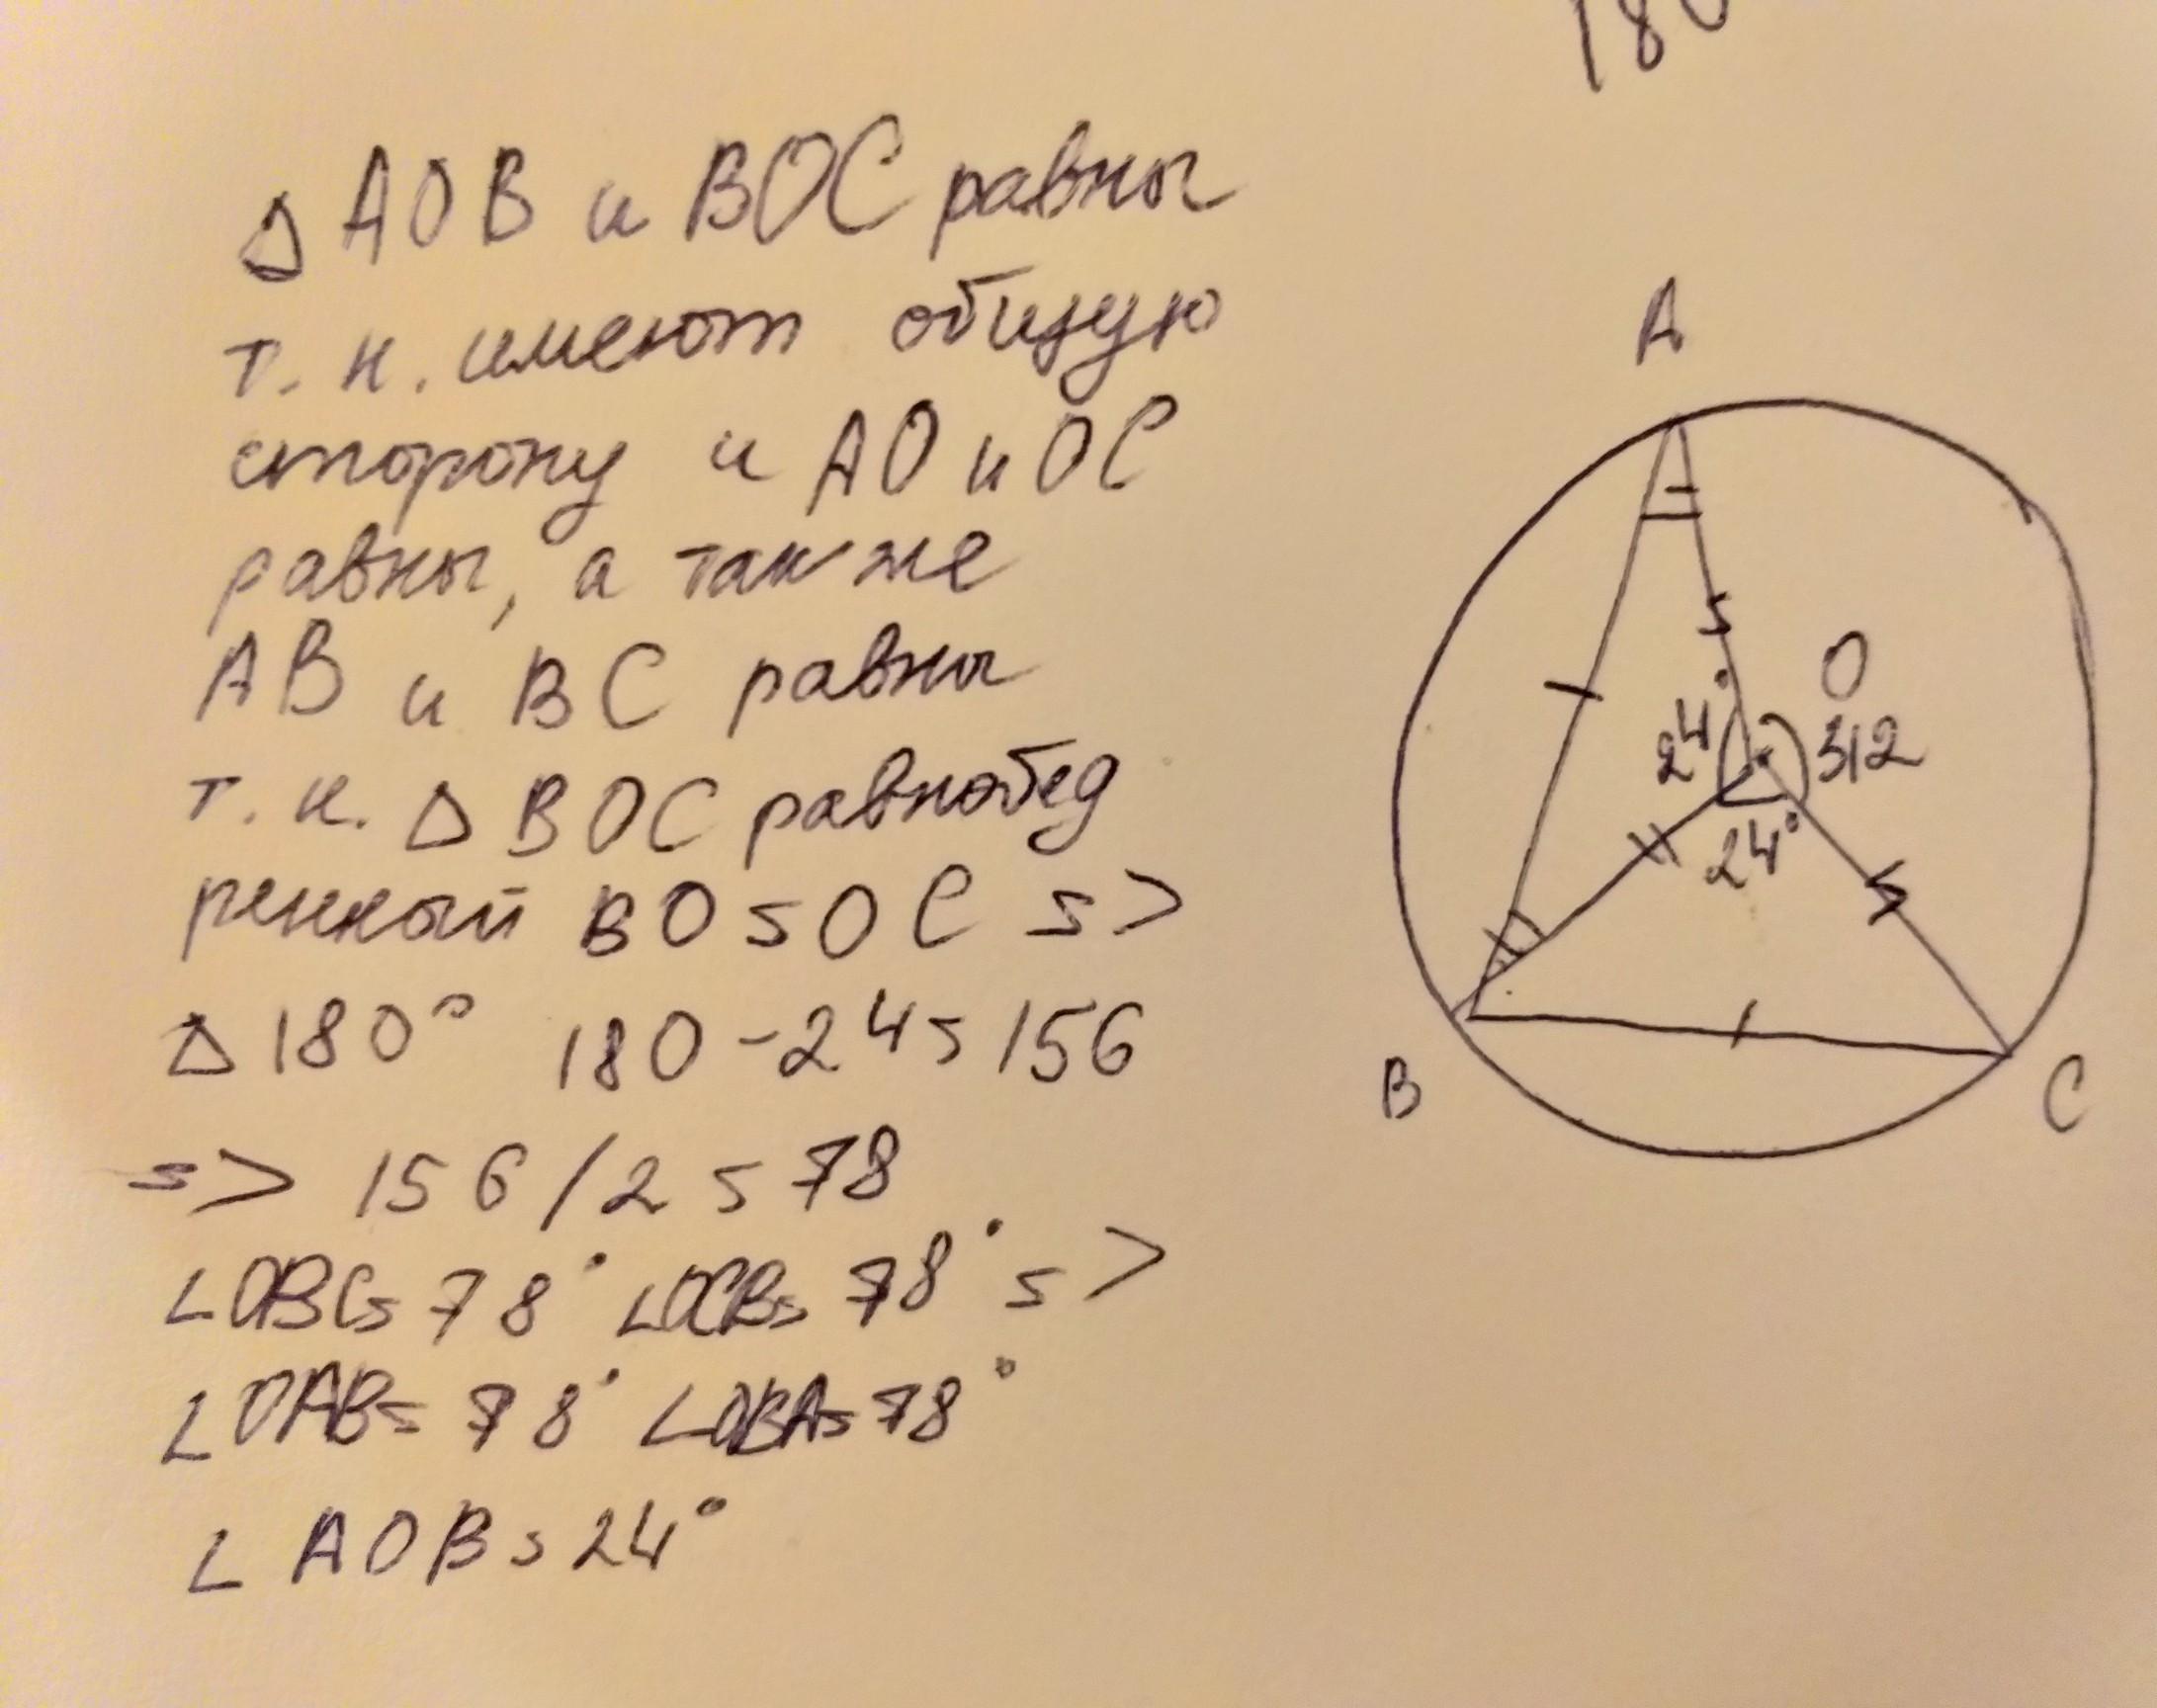 180
Δ AOB и BOC равны
т. к. имеют общую
сторону и AO и OC
равны, а также
AB и BC равны
т. к. Δ BOC равнобед
ренный BO = OC =>
Δ 180° 180 - 24 = 156
=> 156 / 2 = 78
∠OBC = 78° ∠OCB = 78° =>
∠OAB = 78° ∠OBA = 78°
∠ AOB = 24°
A
O
24°
312
24°
B
C